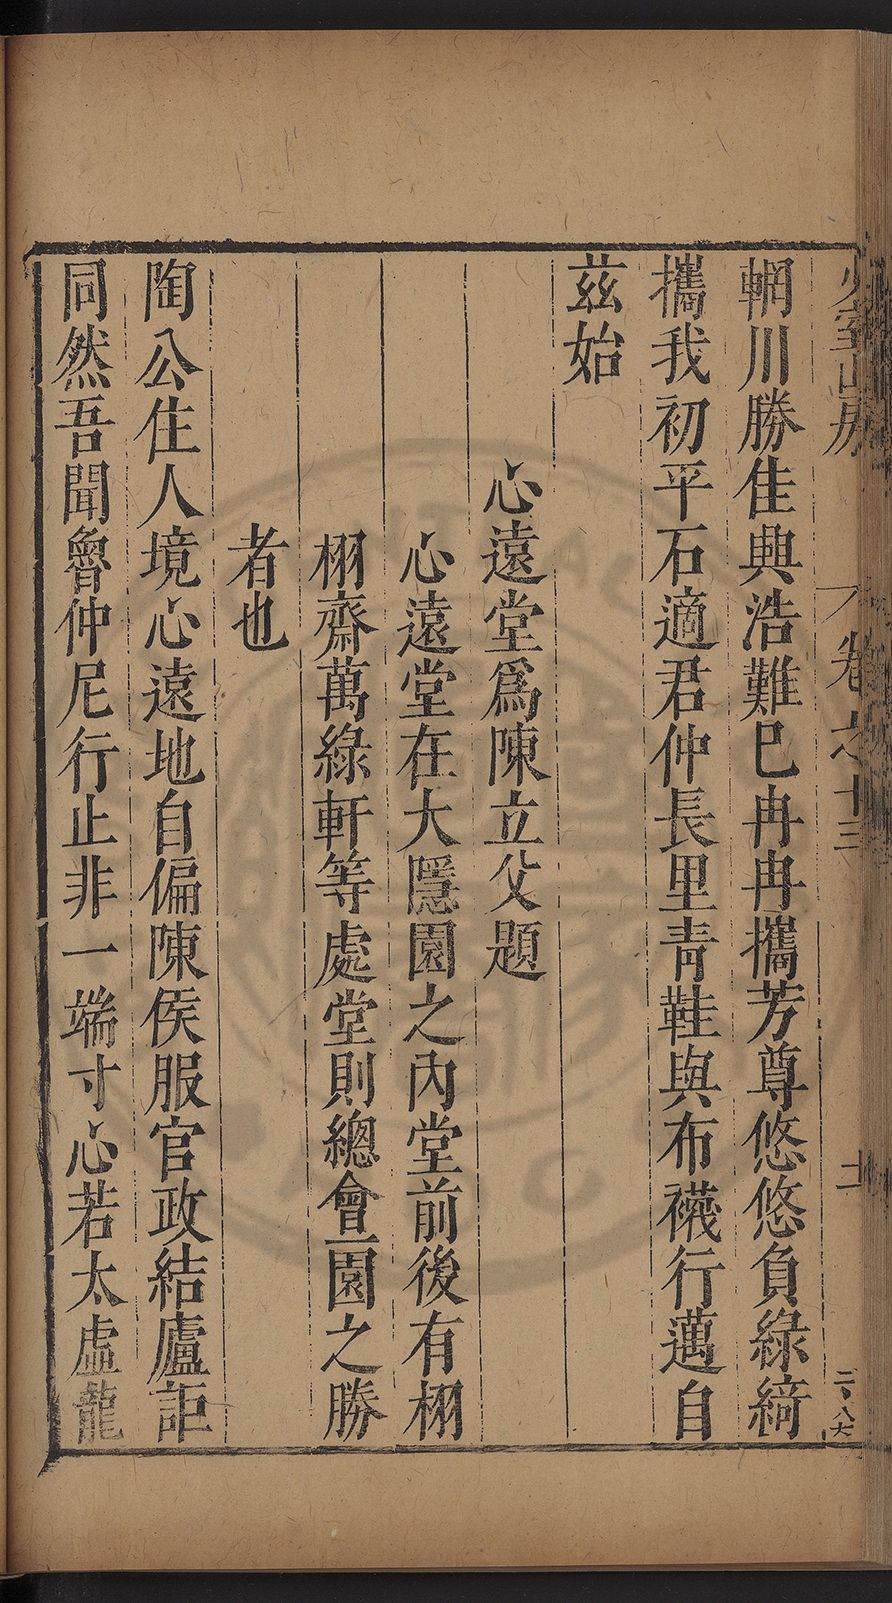 少室山房
卷之十三
十一
輞川勝佳興浩難已冉冉攜芳尊悠悠負綠綺
攜我初平石適君仲長里青鞋與布襪行邁自
茲始
心遠堂爲陳立父題
心遠堂在大隱園之內堂前後有栩
栩齋萬綠軒等處堂則總會一園之勝
者也
陶公住人境心遠地自偏陳侯服官政結廬詎
同然吾聞魯仲尼行止非一端寸心若太虛龍